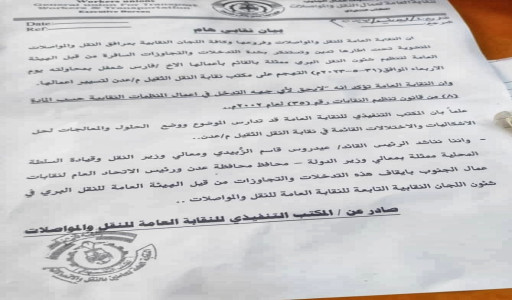 Workers
General Union For Transport
Workers & Transportation
Executive Bureau
Date
Ref
النقابة العامة لعمال النقل والمواصلات
بيان نقابي هام
ان النقابة العامة للنقل والمواصلات وفروعها وكافة اللجان النقابية بمرافق النقل والمواصلات
المنضوية تحت اطارها تدين وتستنكر بشدة التدخلات والتجاوزات السافرة من قبل الهيئة
العامة لتنظيم شئون النقل البري ممثلة بالقائم بأعمالها الاخ /فارس شعفل بمحاولته يوم
الاربعاء الموافق (٣١-٥-٢٠٢٣م) التهجم على مكتب نقابة النقل الثقيل م/عدن لتسيير اعمالها.
وان النقابة العامة تؤكد انه "لايحق لأي جهة التدخل في اعمال المنظمات النقابية حسب المادة
(٨) من قانون تنظيم النقابات رقم (٣٥) لعام ٢٠٠٢م..
علماً بأن المكتب التنفيذي للنقابة العامة قد تدارس الموضوع ووضع الحلول والمعالجات لحل
الاشكاليات والاختلالات القائمة في نقابة النقل الثقيل م/عدن..
- واننا نناشد الرئيس القائد/ عيدروس قاسم الزبيدي ومعالي وزير النقل وقيادة السلطة
المحلية ممثلة بمعالي وزير الدولة - محافظ محافظة عدن ورئيس الاتحاد العام لنقابات
عمال الجنوب بإيقاف هذه التدخلات والتجاوزات من قبل الهيئة العامة للنقل البري في
شئون اللجان النقابية التابعة للنقابة العامة للنقل والمواصلات ..
صادر عن / المكتب التنفيذي للنقابة العامة للنقل والمواصلات